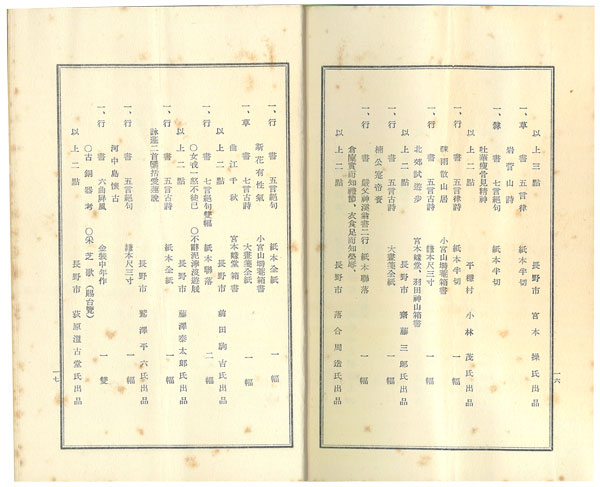 以上三點 長野市 宮本 操氏出品
一、草書 五言律 紙本半切 一幅
岩菅山詩
一、隸書 七言絕句 紙本半切 一幅
吐華瘦骨見精神
以上二點 平穩村 小林 茂氏出品
一、行書 五言律詩 紙本半切 一幅
疎雨散山居 小宮山 箱書
一、行書 五言古詩 絖本尺三寸 一幅
北郊試遊步 宮本 堂、羽田神山箱書
以上二點 長野市 齋藤三郎氏出品
一、行書 五言古詩 大畫箋全紙 一幅
楠公鬼帝賽
一、行書 嚴父神溪翁書二行 紙本聯落 一幅
倉廩實而知禮節、衣食足而知榮辱。
以上二點 長野市 落合周造氏出品
一六
一、行書 五言絕句 紙本全紙 一幅
新花有性氣 小宮山 箱書
一、草書 七言古詩 大畫箋全紙 一幅
曲江千秋 宮本 堂箱書
以上二點 長野市 前田駒吉氏出品
一、行書 七言絕句雙幅 紙本聯落 二幅
〇女我一怒不徒已 〇不辭泥滓被遊展
以上二點 長野市 藤澤泰太郎氏出品
一、行書 五言古詩 紙本全紙 一幅
詠蓮二首
長野市 鷲澤平六氏出品
一、行書 五言絕句 絖本尺三寸 一幅
河中島懷古
一、行書 六曲屛風 金裝中年作 一雙
〇古銅器考 〇采芝歌(賜台覽)
以上二點 長野市 荻原 古堂氏出品
一七